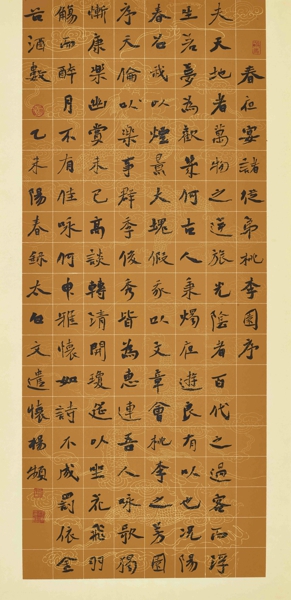 春夜宴諸從弟桃李園序
夫天地者萬物之逆旅光陰者百代之過客而浮
生若夢為歡幾何古人秉燭夜遊良有以也況陽
春召我以煙景大塊假我以文章會桃李之芳園
序天倫以樂事群季俊秀皆為惠連吾人詠歌獨
慚康樂幽賞未已高談轉清開瓊筵以坐花飛羽
觴而醉月不有佳咏何申雅懷如詩不成罰依金
谷酒數 乙未陽春錄太白文遣懷楊頻